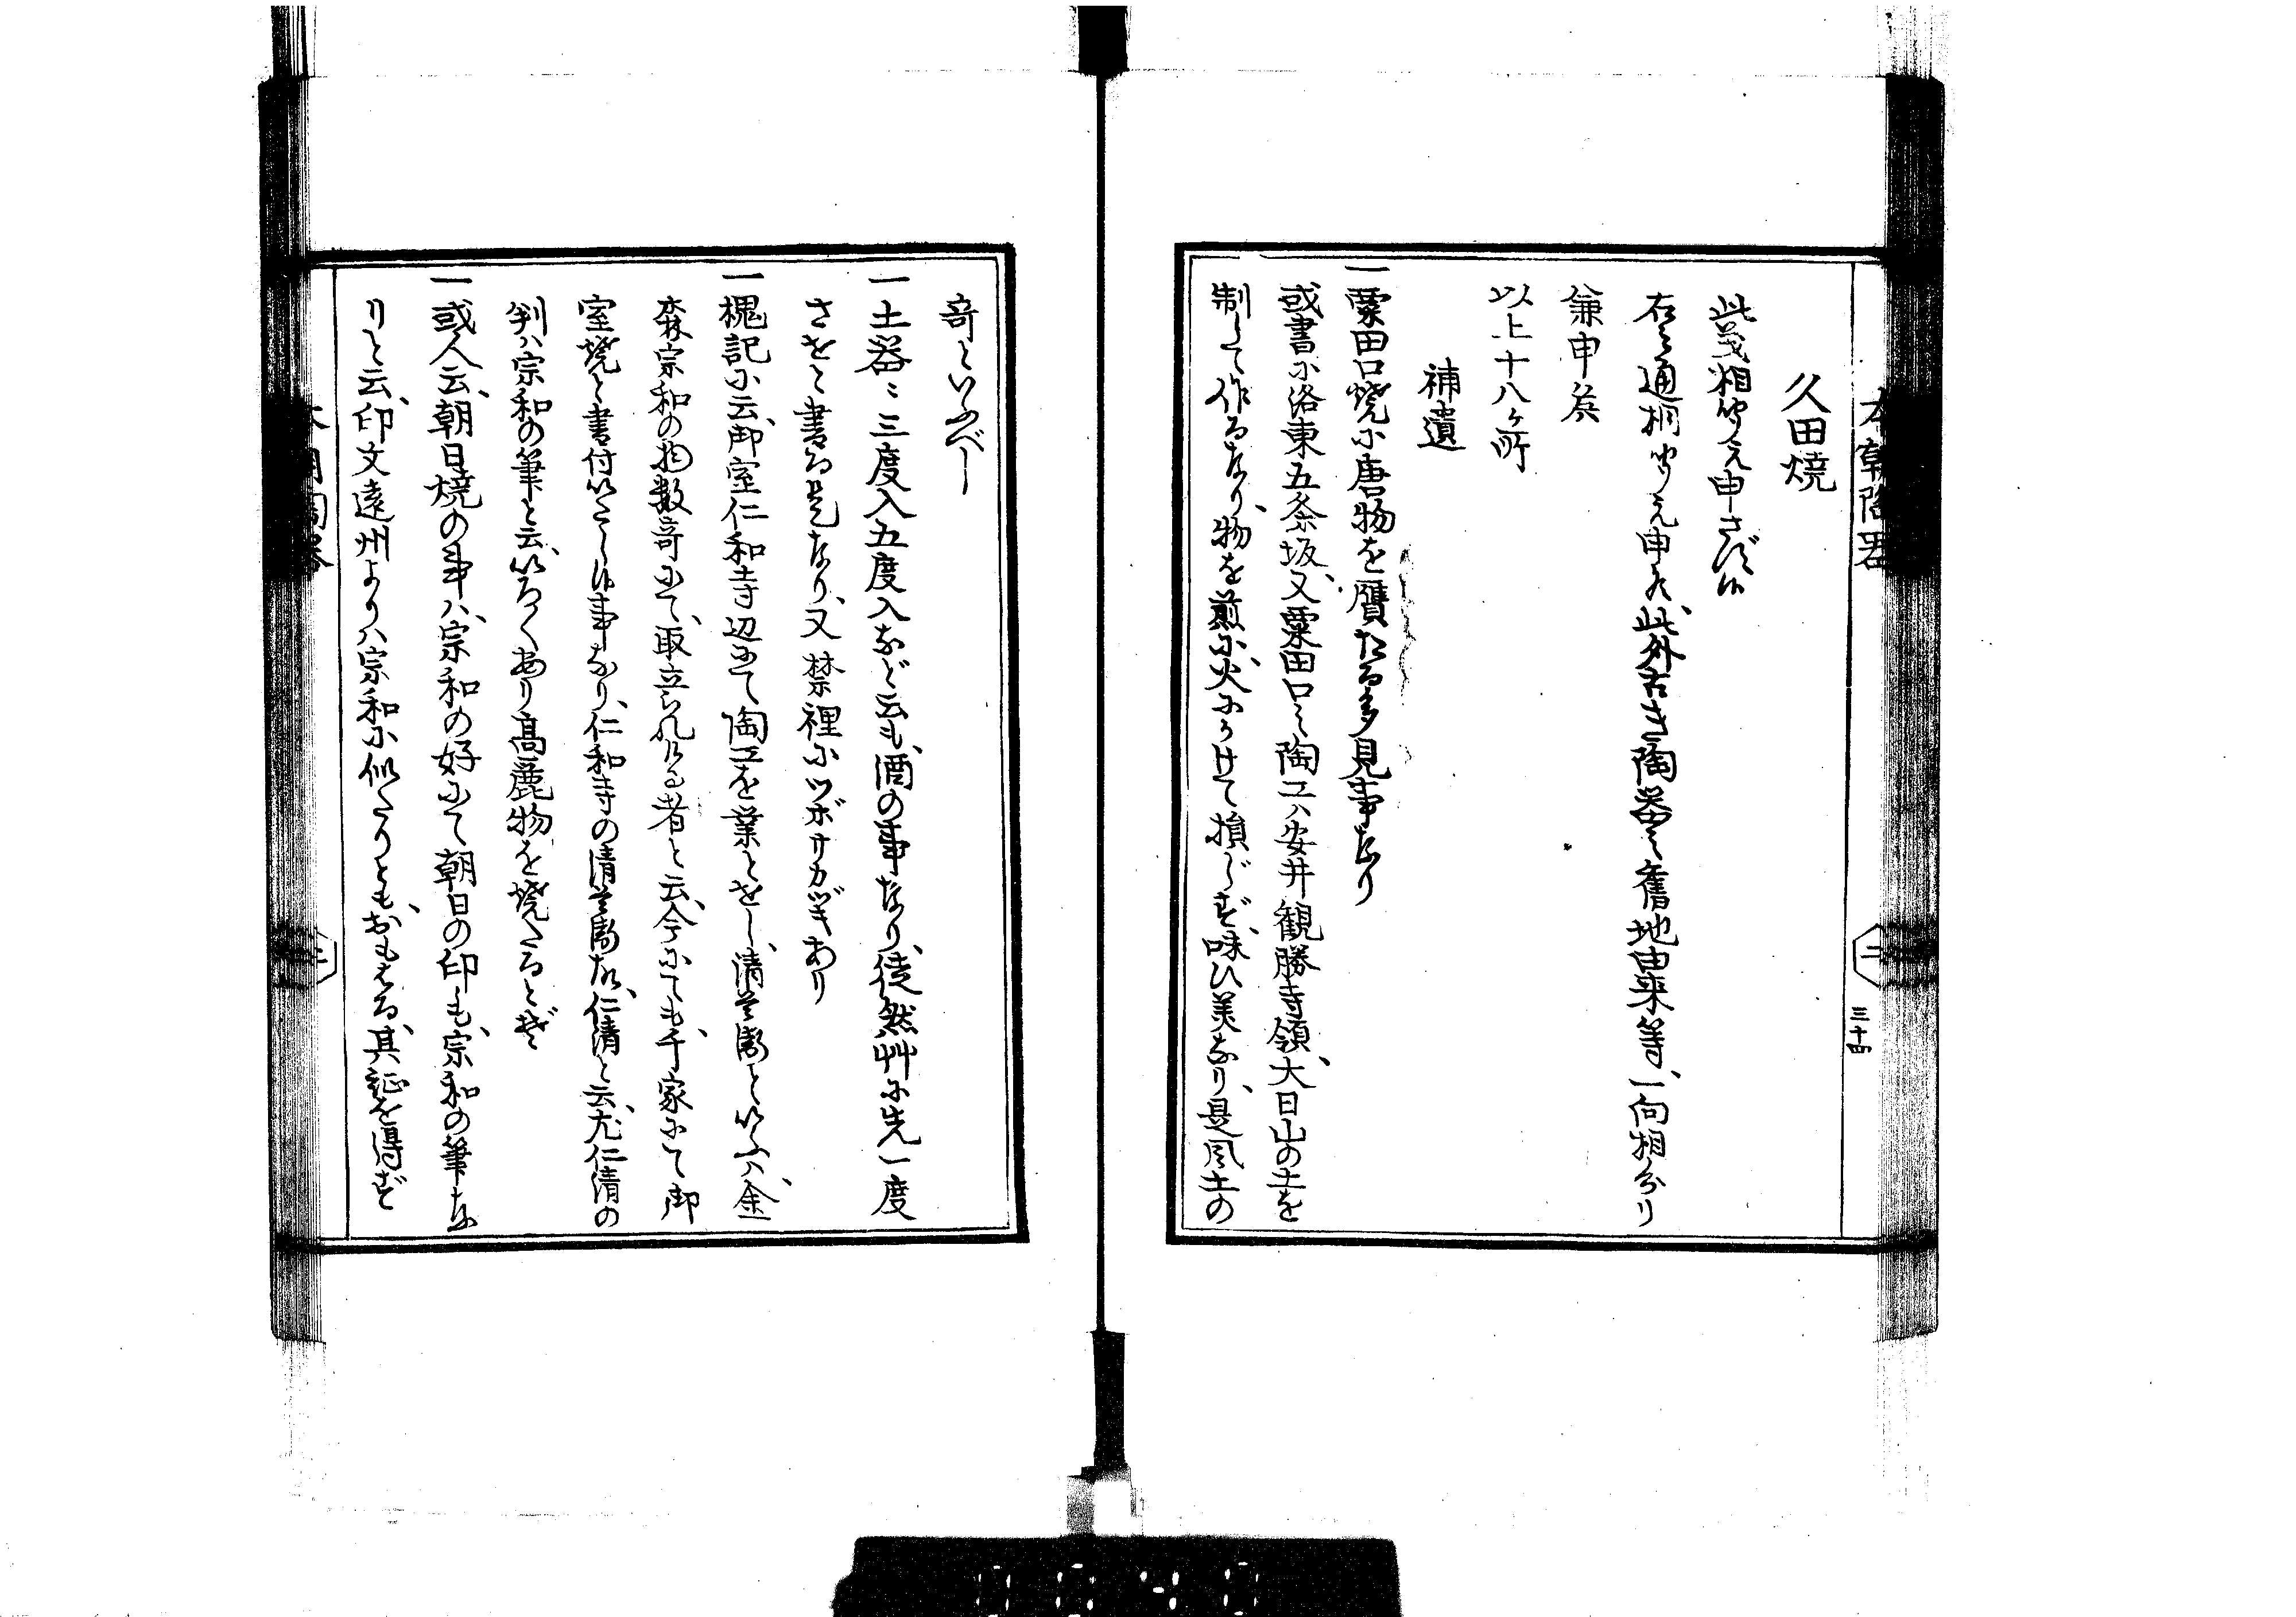 久田焼
此義相聞え申さず候
右之通相聞え申候、此外古き陶器之舊地由来等、一向相分り
兼申候
以上十八ヶ所
補遺
一粟田口焼に唐物を贋たる多見事なり
或書に洛東五条坂、又粟田口之陶工ハ安井観勝寺領、大日山の土を
制して作るなり、物を煎に、火にかけて損ぜず、味ひ美なり、是風土の
竒といふべし
一土器ニ三度入五度入など云も、酒の事なり、徒然艸に先一度
さをと書る是なり、又禁裡にツボサカヅキあり
一槐記に云、御室仁和寺辺にて陶工を業とをし、清兵衛といふハ、金
森宗和の物数竒にて、取立られける者と云、今にても、千家にて御
室焼と書付いたし候事なり、仁和寺の清兵衛故、仁清と云、尤仁清の
判ハ宗和の筆と云、いろ〳〵あり高麗物を焼たるとぞ
一或人云、朝日焼の事ハ、宗和の好にて朝日の印も、宗和の筆な
りと云、印文遠州よりハ宗和に似たりとも、おもはる、其証を得ず
本朝陶器
二
三十四